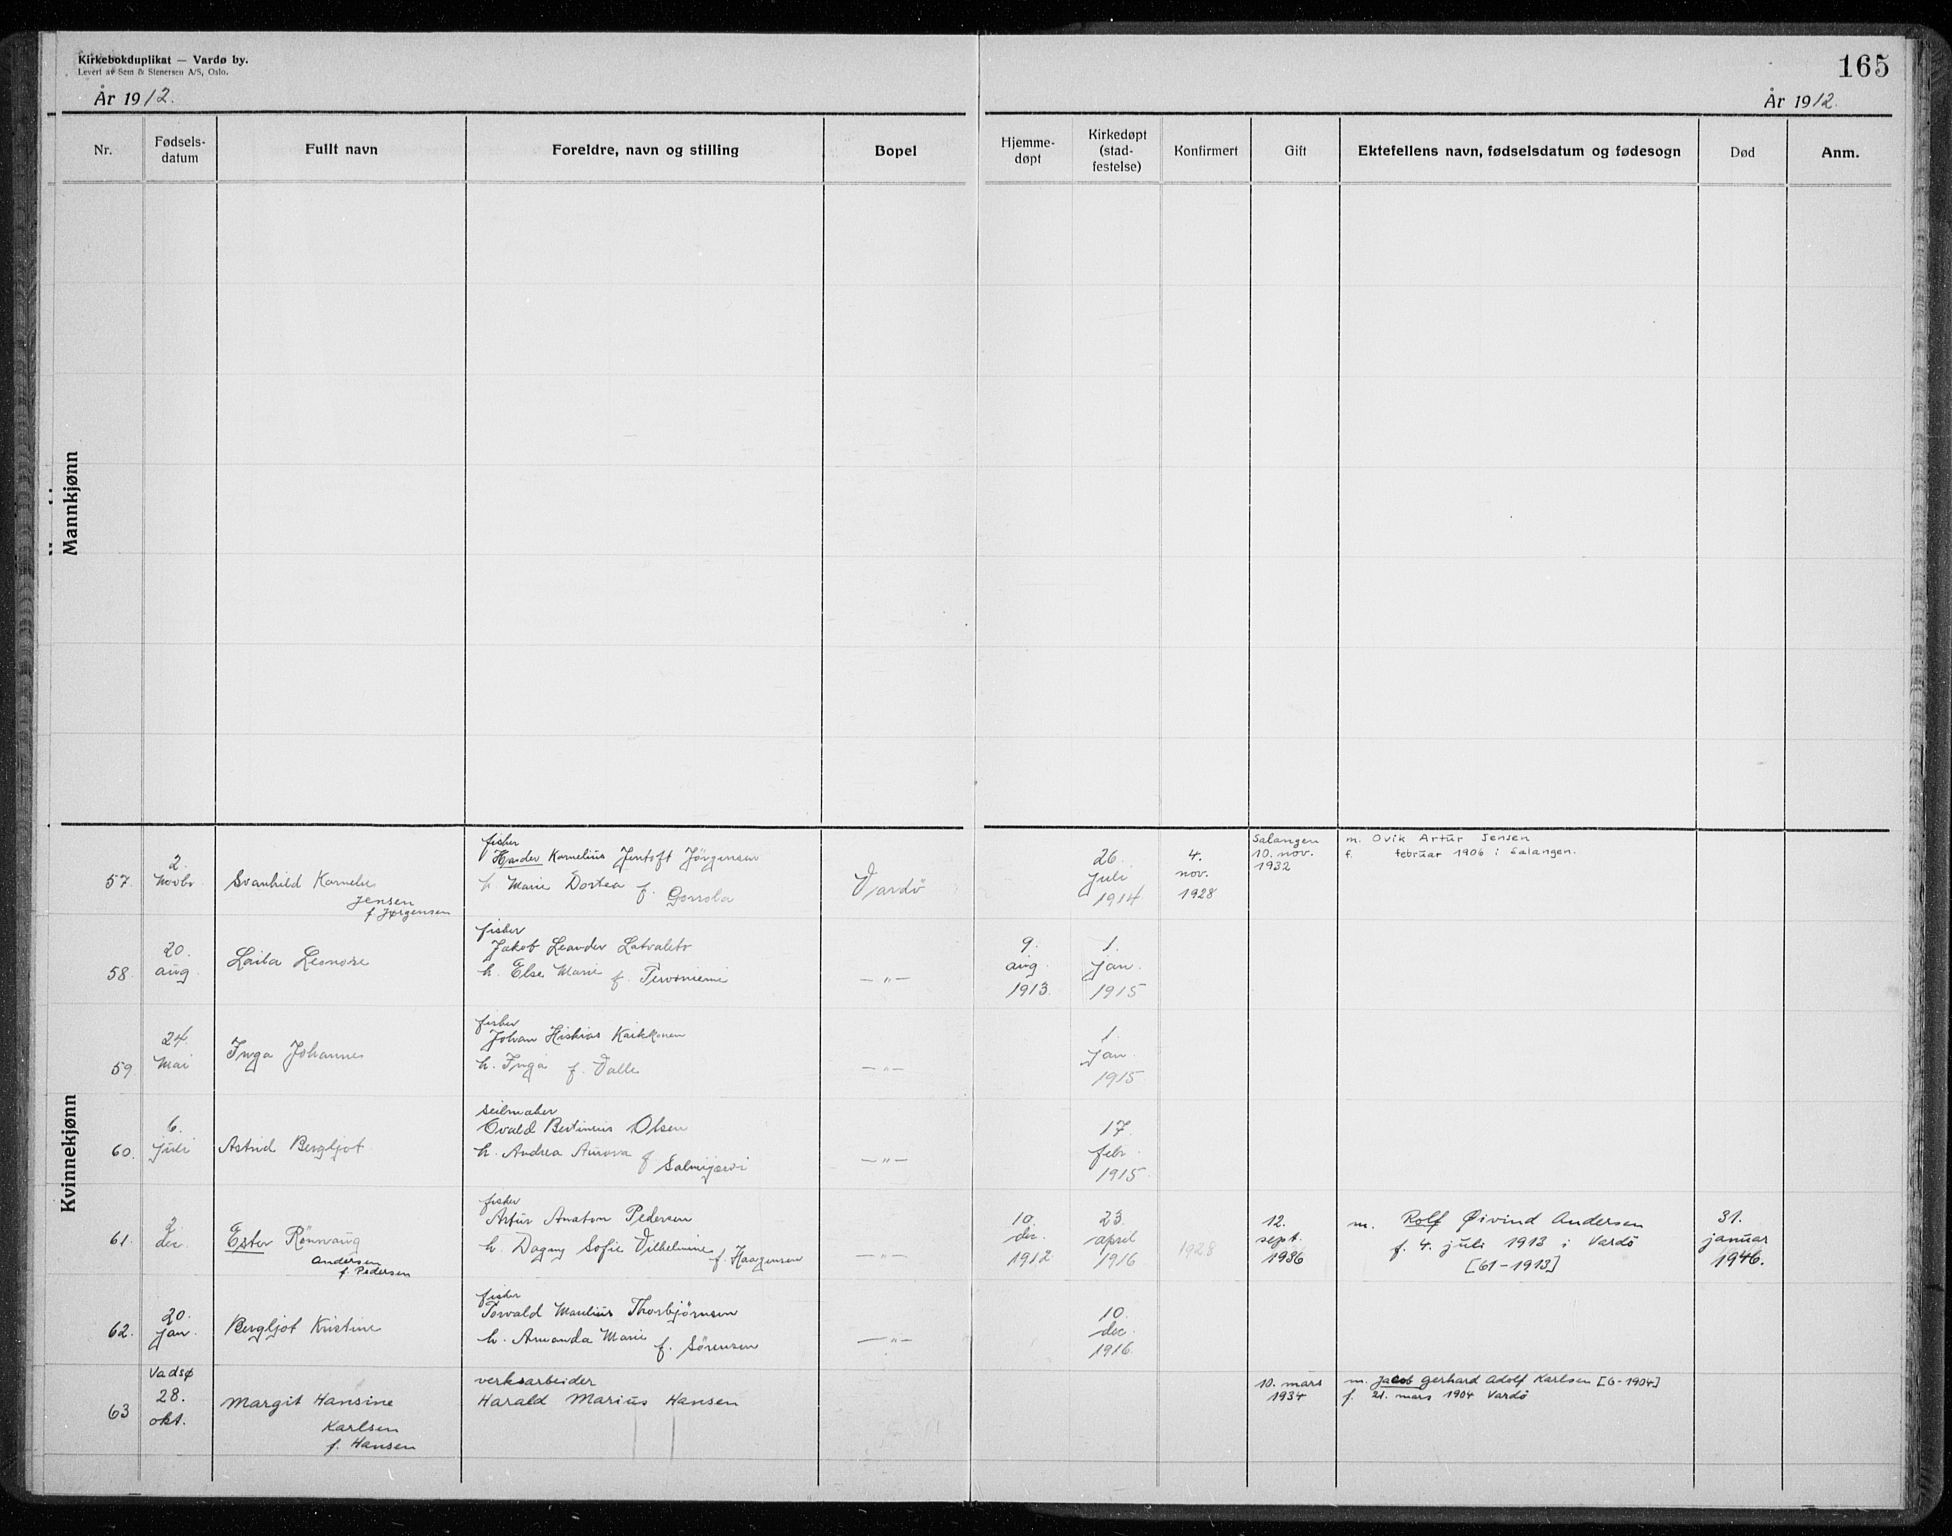 Kirkebokduplikat — Vardø by.
Levert av Sem & Stenersen A/S, Oslo.
165
År 1912.
År 1912.
Nr.
Fødsels-
datum
Fullt navn
Foreldre, navn og stilling
Bopel
Hjemme-
døpt
Kirkedøpt
(stad-
festelse)
Konfirmert
Gift
Ektefellens navn, fødselsdatum og fødesogn
Død
Anm.
Mannkjønn
Kvinnekjønn
57.
2.
Novbr.
Svanhild Kornelie
Jensen
f. Jørgensen
fisker
Hardor Kornelius Jentoft Jörgensen
h. Marie Dortea f.
Vardö
26.
juli
1914
4.
nov.
1928
Salangen
10. nov.
1932
m. Ovik Artur Jensen
f. februar 1906 i Salangen.
58.
20.
aug.
Laila Leonore
fisker
Jakob Leander
h. Else Marie f. Tervoniemi
— „ —
9.
aug.
1913.
1.
jan.
1915
59
24.
Mai
Inga Johannes
fisker
Johan Hiskias Kaikkonen
h. Inga f. Valle
— „ —
1.
jan.
1915
60.
6.
juli
Astrid Bergljot
seilmaker
Evald Bertinius Olsen
h. Andrea Aurora f. Salmijærvi
— „ —
17.
febr.
1915
61.
2.
dec.
Ester Rönnaug
Andersen
f. Pedersen
fisker
Artur Anaton Pedersen
h. Dagny Sofie Vilhelmine f. Haagensen
— „ —
10.
dec.
1912
23.
april
1916
1928
12.
sept.
1936
m. Rolf Øivind Andersen
f. 4. juli 1913 i Vardö
[61-1913]
31.
januar
1946.
62.
20.
jan.
Bergljot Kristine
fisker
Torvald Maulius Thorbjørnsen
h. Amanda Marie f. Sørensen
— „ —
10.
dec.
1916.
63
Vadsø
28.
okt.
Margit Hansine
Karlsen
f. Hansen
verksarbeider
Harald Marius Hansen
10. mars
1934
m. Jacob Gerhard Adolf Karlsen [6-1904]
f. 21. mars 1904 Vardö